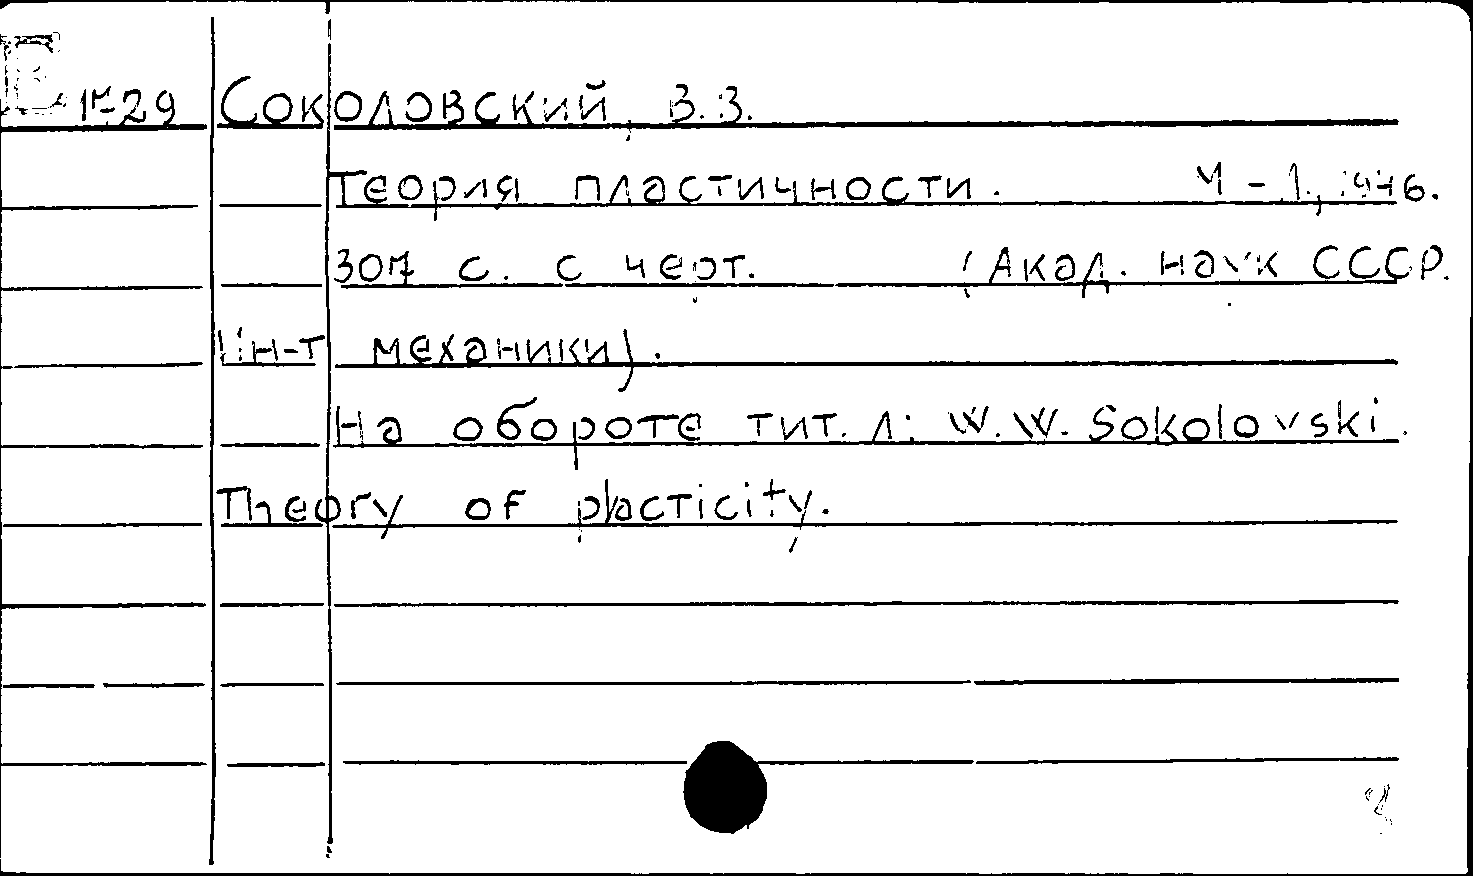 E 17-29 Соколовский, В.В.
Теория пластичности. М-Л., 1946.
307 с. с черт. (Акад. наук СССР.
Ин-т механики).
На обороте тит. л: W.W. Sokolovski.
Theory of placticity.